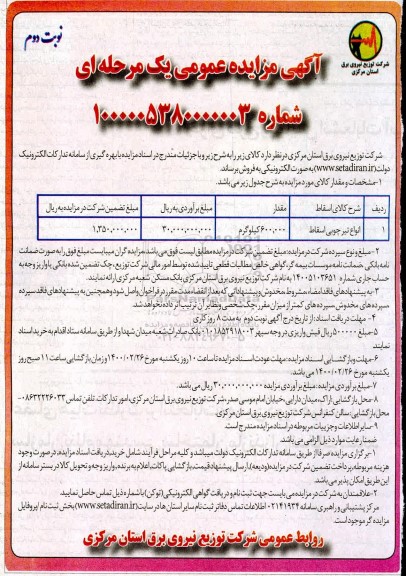 نوبت دوم
شرکت توزیع نیروی برق
استان مرکزی
آگهی مزایده عمومی یک مرحله ای
شماره ۱۰۰۰۰۰۵۳۸۰۰۰۰۰۰۳
شرکت توزیع نیروی برق استان مرکزی در نظر دارد کالای زیر را به شرح زیر و با جزئیات مندرج در اسناد مزایده با بهره گیری از سامانه تدارکات الکترونیک
دولت (www.setadiran.ir) به صورت الکترونیکی به فروش برساند.
۱-مشخصات و مقدار کالای مورد مزایده به شرح جدول زیر می باشد.
ردیف شرح کالای اسقاط مقدار مبلغ برآوردی به ریال مبلغ تضمین شرکت در مزایده به ریال
۱ انواع تیر چوبی اسقاط ۶۰۰,۰۰۰ کیلوگرم ۳۰,۰۰۰,۰۰۰,۰۰۰ ۱,۳۵۰,۰۰۰,۰۰۰
۲-مبلغ و نوع سپرده شرکت در مزایده: مبلغ تضمین شرکت در مزایده مطابق لیست فوق می باشد، مزایده گران میبایست مبلغ فوق را به صورت ضمانت
نامه بانکی، ضمانت نامه موسسات بیمه گر، گواهی خالص مطالبات قطعی تایید شده توسط امور مالی شرکت توزیع، چک تضمین شده بانکی یا واریز وجه به
حساب جاری شماره به نام شرکت توزیع نیروی برق استان مرکزی بانک مسکن شعبه مرکزی ارائه نمایند.
۳-به پیشنهادهای فاقد امضاء، مشروط، مخدوش و پیشنهاداتی که بعد از انقضاء مدت مقرر در فراخوان واصل شود و همچنین به پیشنهادهای فاقد سپرده
سپرده های مخدوش، سپرده های کمتر از میزان مقرر، چک شخصی و نظایر آن ترتیب اثر داده نخواهد شد.
۴- مهلت دریافت اسناد: از تاریخ درج آگهی نوبت دوم به مدت ۸ روز کاری
۵-مبلغ ۵۰۰۰۰۰ ریال فیش واریزی در وجه سپهر ۰۱۰۱۸۵۲۹۱۸۰۰۲ بانک صادرات شعبه میدان شهدا و از طریق سامانه ستاد اقدام به خرید اسناد
نمایند
۶-مهلت و بازگشایی اسناد مزایده: مهلت عودت اسناد مزایده تا ساعت ۱۰ روز یکشنبه مورخ ۱۴۰۰/۰۲/۲۶ و زمان بازگشایی ساعت ۱۱ صبح روز
یکشنبه مورخ ۱۴۰۰/۰۲/۲۶ می باشد.
۷-مبلغ برآوردی مزایده: مبلغ برآوردی مزایده ۳۰,۰۰۰,۰۰۰,۰۰۰ ریال می باشد.
۸-محل بازگشایی: اراک، میدان دارایی، خیابان امام موسی صدر، شرکت توزیع نیروی برق استان مرکزی، امور تدارکات: تلفن تماس ۰۸۶۳۲۲۲۶۰۳۳
محل بازگشایی: سالن کنفرانس شرکت توزیع نیروی برق استان مرکزی.
۹-سایر اطلاعات و جزییات مربوطه در اسناد مزایده مندرج است
ضمنا رعایت موارد ذیل الزامی می باشد.
۱-برگزاری مزایده صرفا از طریق سامانه تدارکات الکترونیک دولت میباشد و کلیه مراحل فرآیند شامل خرید، دریافت اسناد مزایده، در صورت وجود
هزینه مربوطه، پرداخت تضمین شرکت در مزایده (ودیعه)، ارسال پیشنهاد قیمت، بازگشایی پاکات، اعلام به برنده، واریز وجه و تحویل کالا در بستر سامانه از
این طریق امکان پذیر می باشد.
۲-علاقمندان به شرکت در مزایده می بایست جهت ثبت نام و دریافت گواهی الکترونیکی (توکن) با شماره ذیل تماس حاصل نمایید.
مرکز پشتیبانی و راهبری سامانه ۰۲۱۴۱۹۳۴ اطلاعات تماس دفاتر ثبت نام سایر استان ها در سایت (www.setadiran.ir) بخش ثبت نام/پروفایل
مزایده گر موجود است.
روابط عمومی شرکت توزیع نیروی برق استان مرکزی